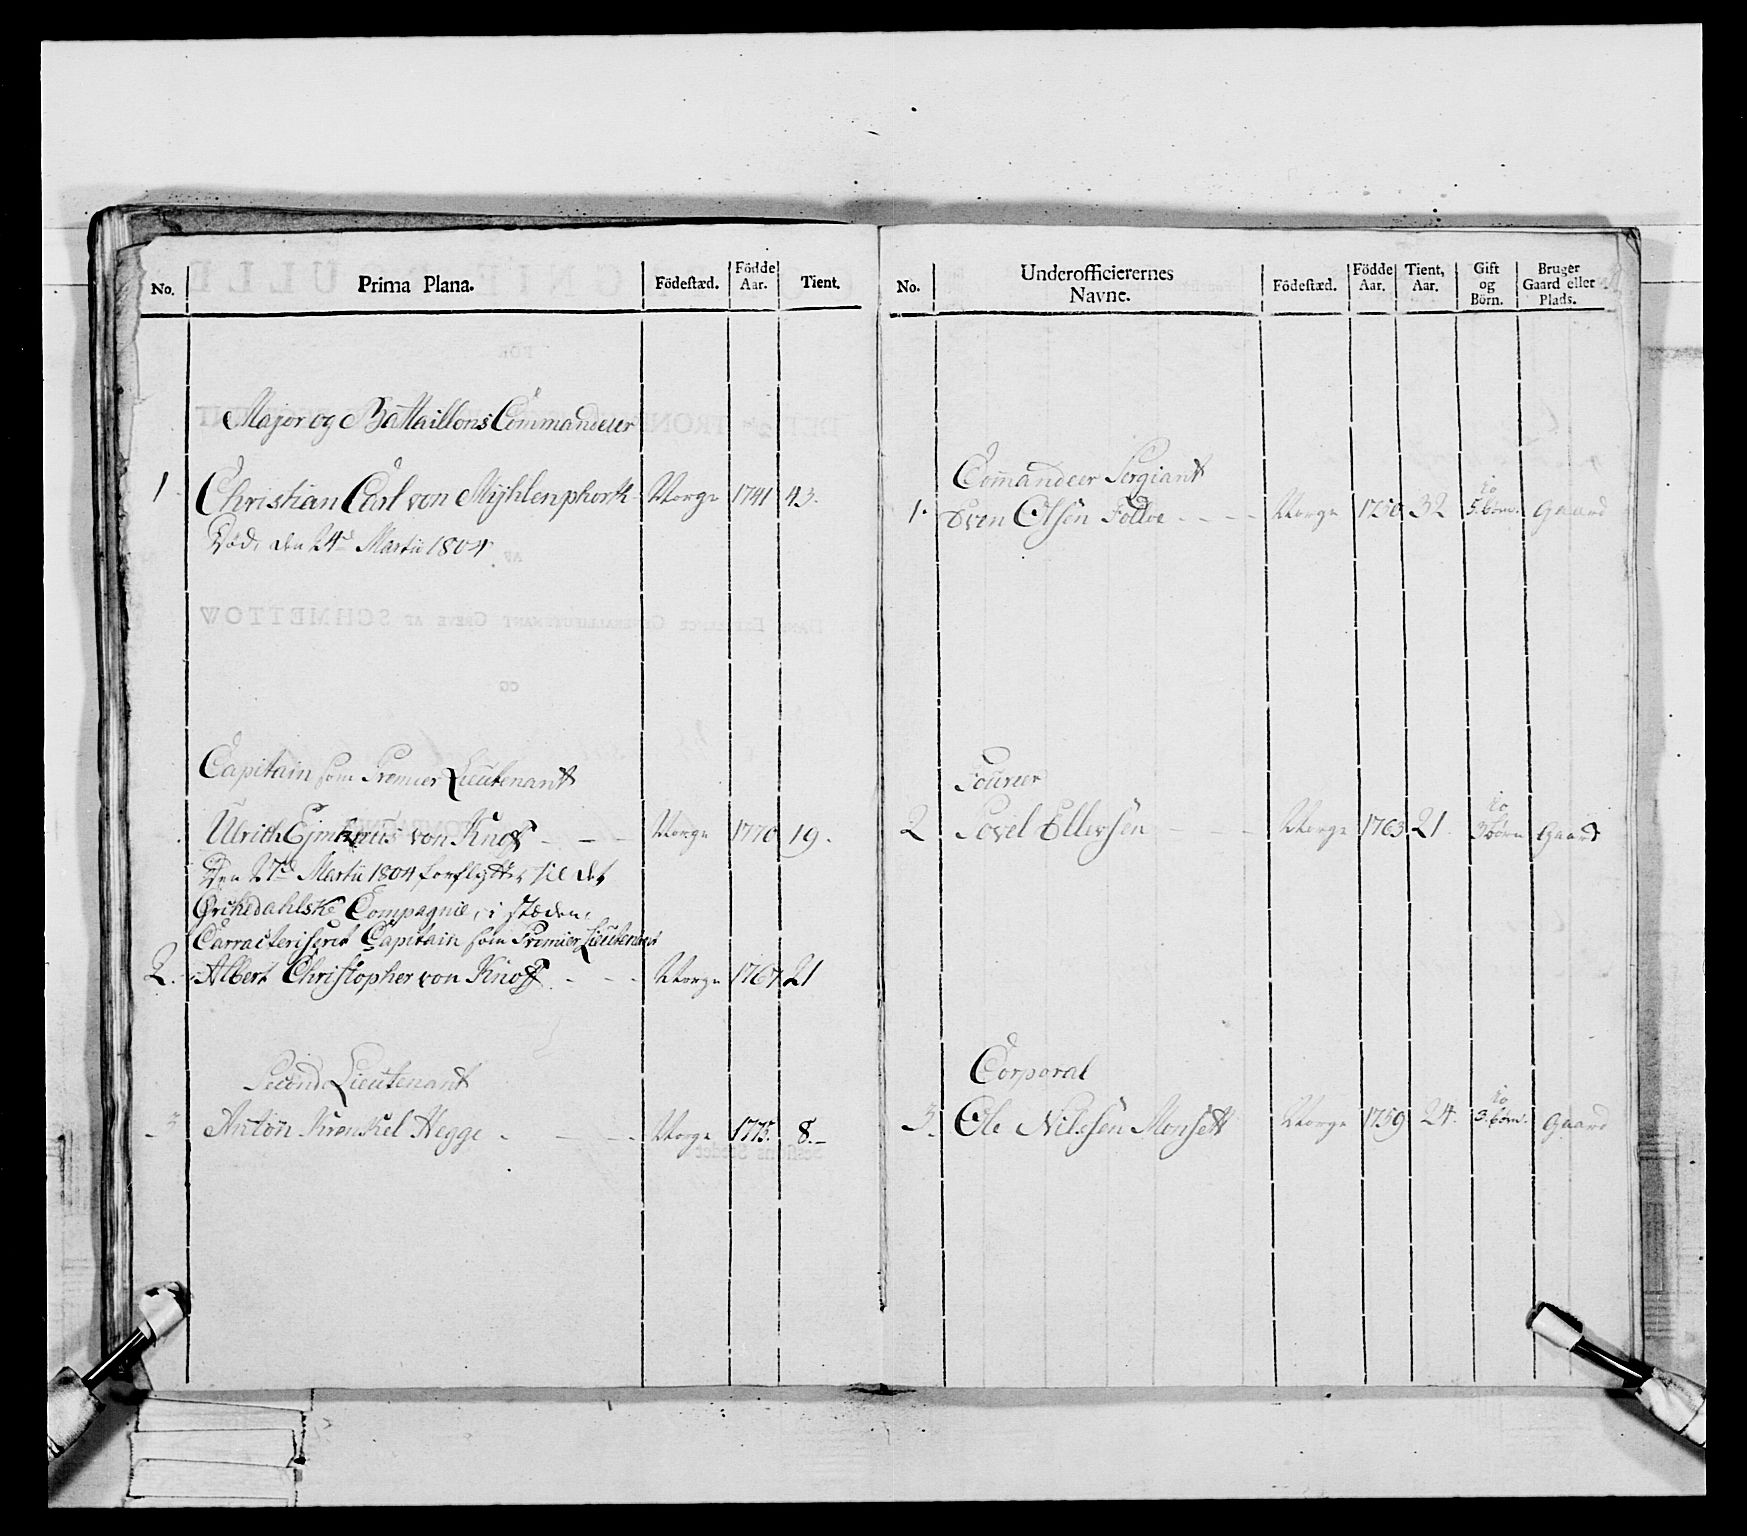 No. Prima Plana. Födestæd. Födde Aar. Tient.
Major og Battaillons Commandeur
1. Christian Carl von Mÿhlenphort Norge 1741 43.
Död, den 24d Martii 1804
Capitain som Premier Lieutenant
Ulrich von Knoff - - - Norge 1770 19.
Den 27d Martii 1804 forflyttet til det
Orchedahlske Compagnie, i stæden,
Carracteriseret Capitain som Premier Lieutenant
2. Albert Christopher von Knoff. - - - Norge 1767 21
Second Lieutenant
3 Anton Krenkel Hegge - - - Norge 1775. 8.-
No. Underofficierernes Navne. Födestæd. Födde Aar. Tient, Aar. Gift og Börn. Bruger Gaard eller Plads.
Comandeer Sergiant
1. Sven Olsen - - - Norge 1750 32 5. börn. Gaard
Fourier
2 Povel Ellersen - - Norge 1763 21. 3 börn Gaard
Corporal
3. Ole Nilssen Monsett Norge 1759 24. 3. börn. Gaard